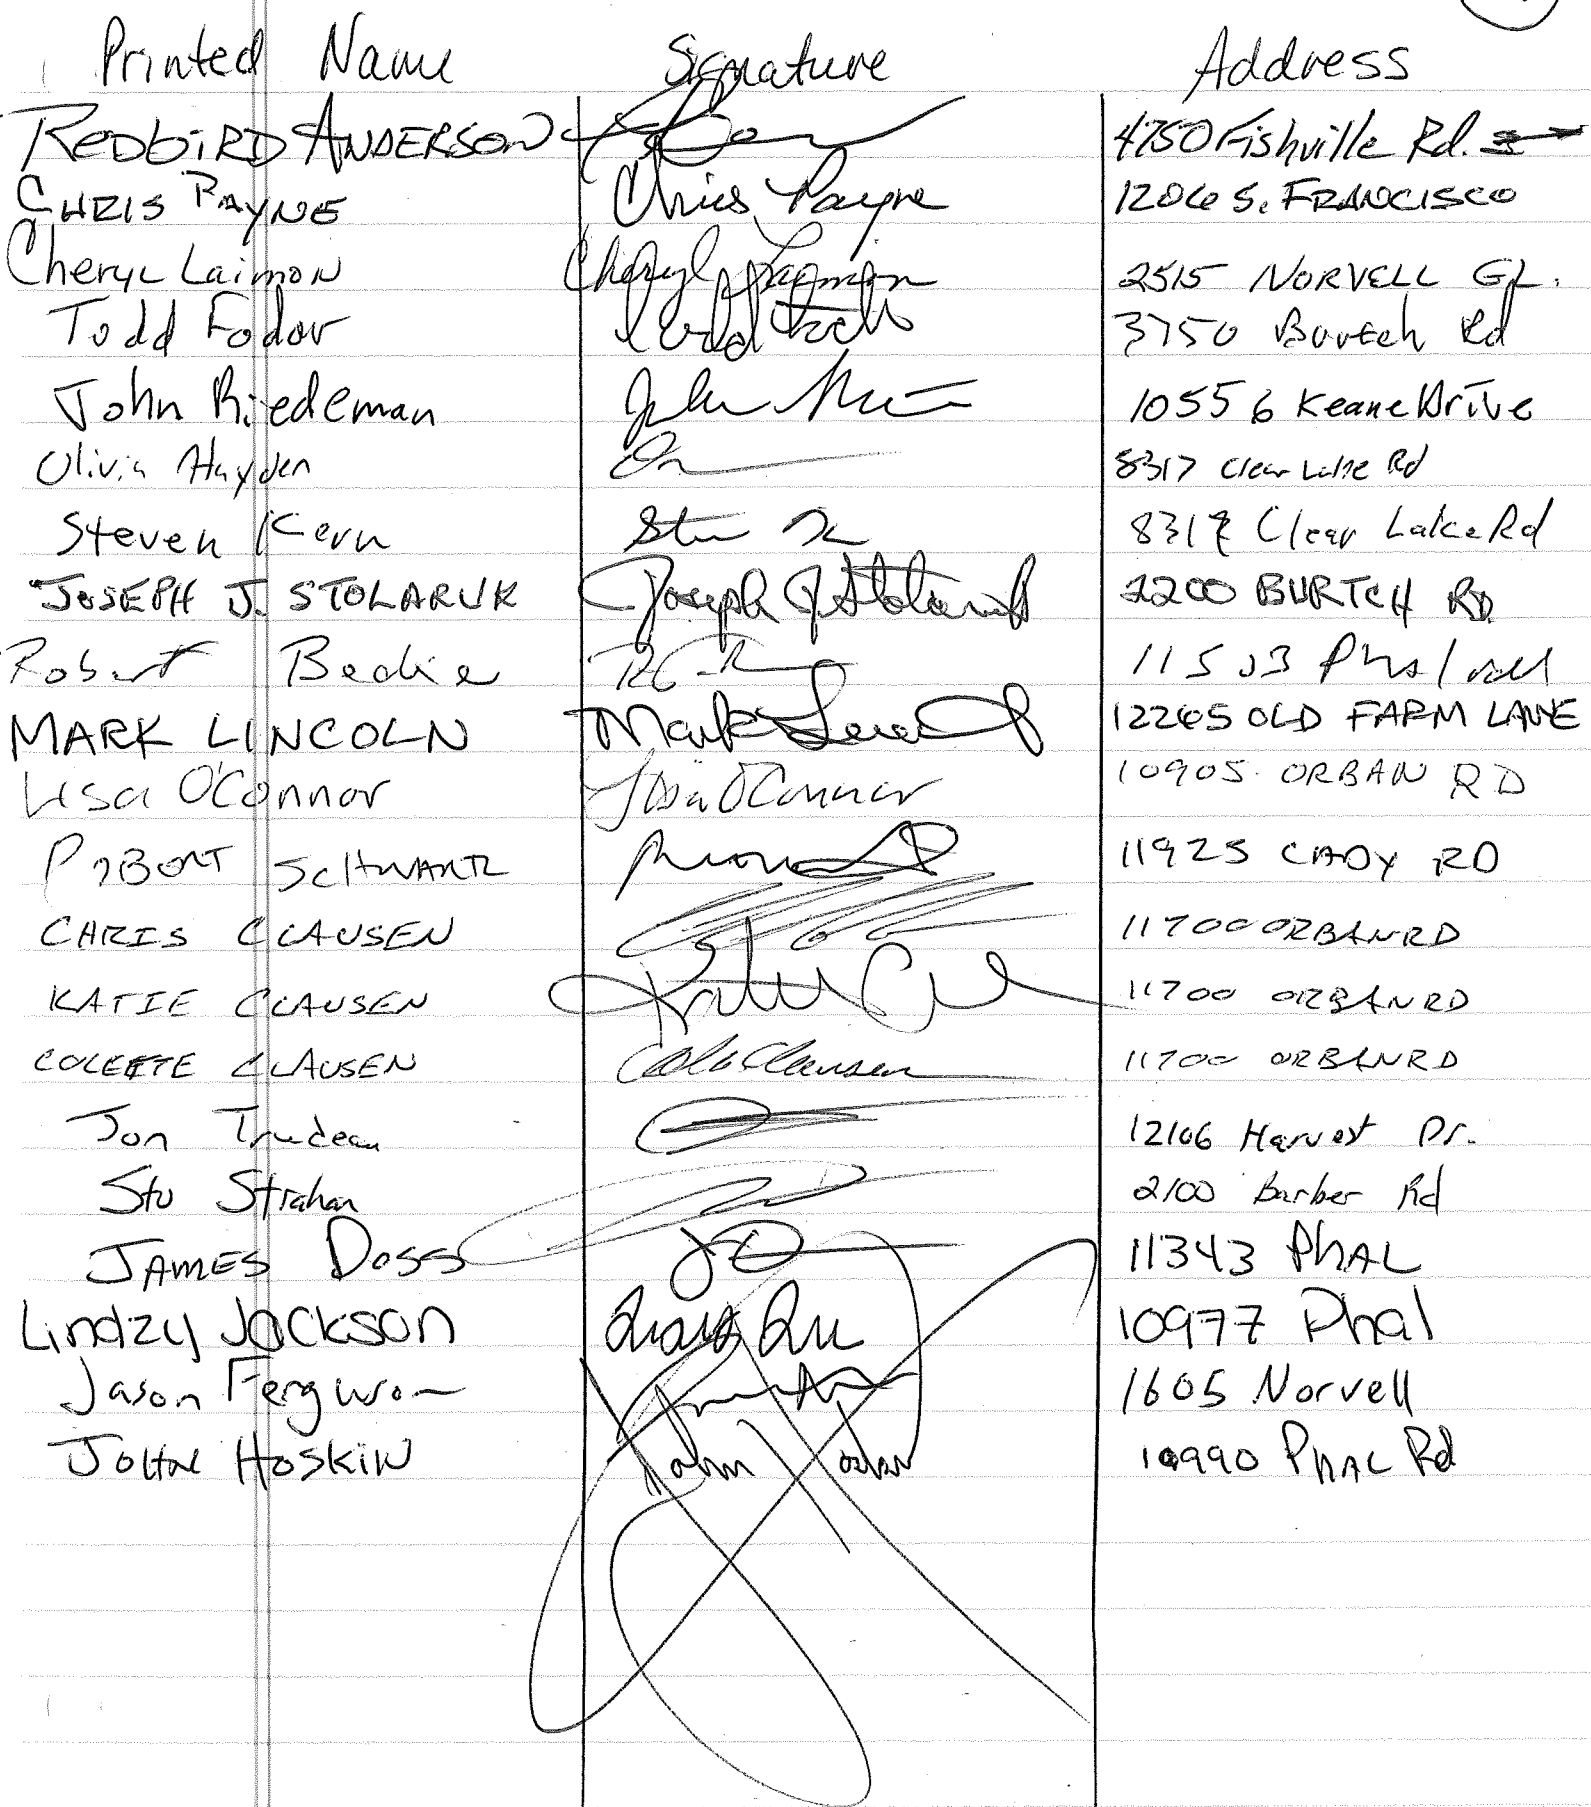 Printed Name Signature Address
REDBIRD ANDERSON 4750 Fishville Rd.
CHRIS PAYNE Chris Payne 1206 S. FRANCISCO
Cheryl Laimon Cheryl 2515 NORVELL
Todd Fodor Todd 3750 Burtch Rd
John Riedeman John 10556 Keane Drive
Olivia Hayden 8317 Clear Lake Rd
Steven Kern 8317 Clear Lake Rd
JOSEPH J. STOLARUK Joseph J Stolaruk 2200 BURTCH RD.
Robert Beckie
MARK LINCOLN Mark 12265 OLD FARM LANE
Lisa O'Connor Lisa O'Connor 10905 ORBAN RD
SCHWARTZ 11925 CADY RD
CHRIS CLAUSEN 11700 ORBAN RD
KATIE CLAUSEN 11700 ORBAN RD
COLETTE CLAUSEN Clausen 11700 ORBAN RD
Jon Trudeau 12106 Harvest Dr.
Stu Strahan 2100 Barber Rd
JAMES DOSS JD 11343 PhAL
Lindzy Jackson 10977 Phal
Jason Ferguson 1605 Norvell
JOHN HOSKIN John 10990 PhAL Rd